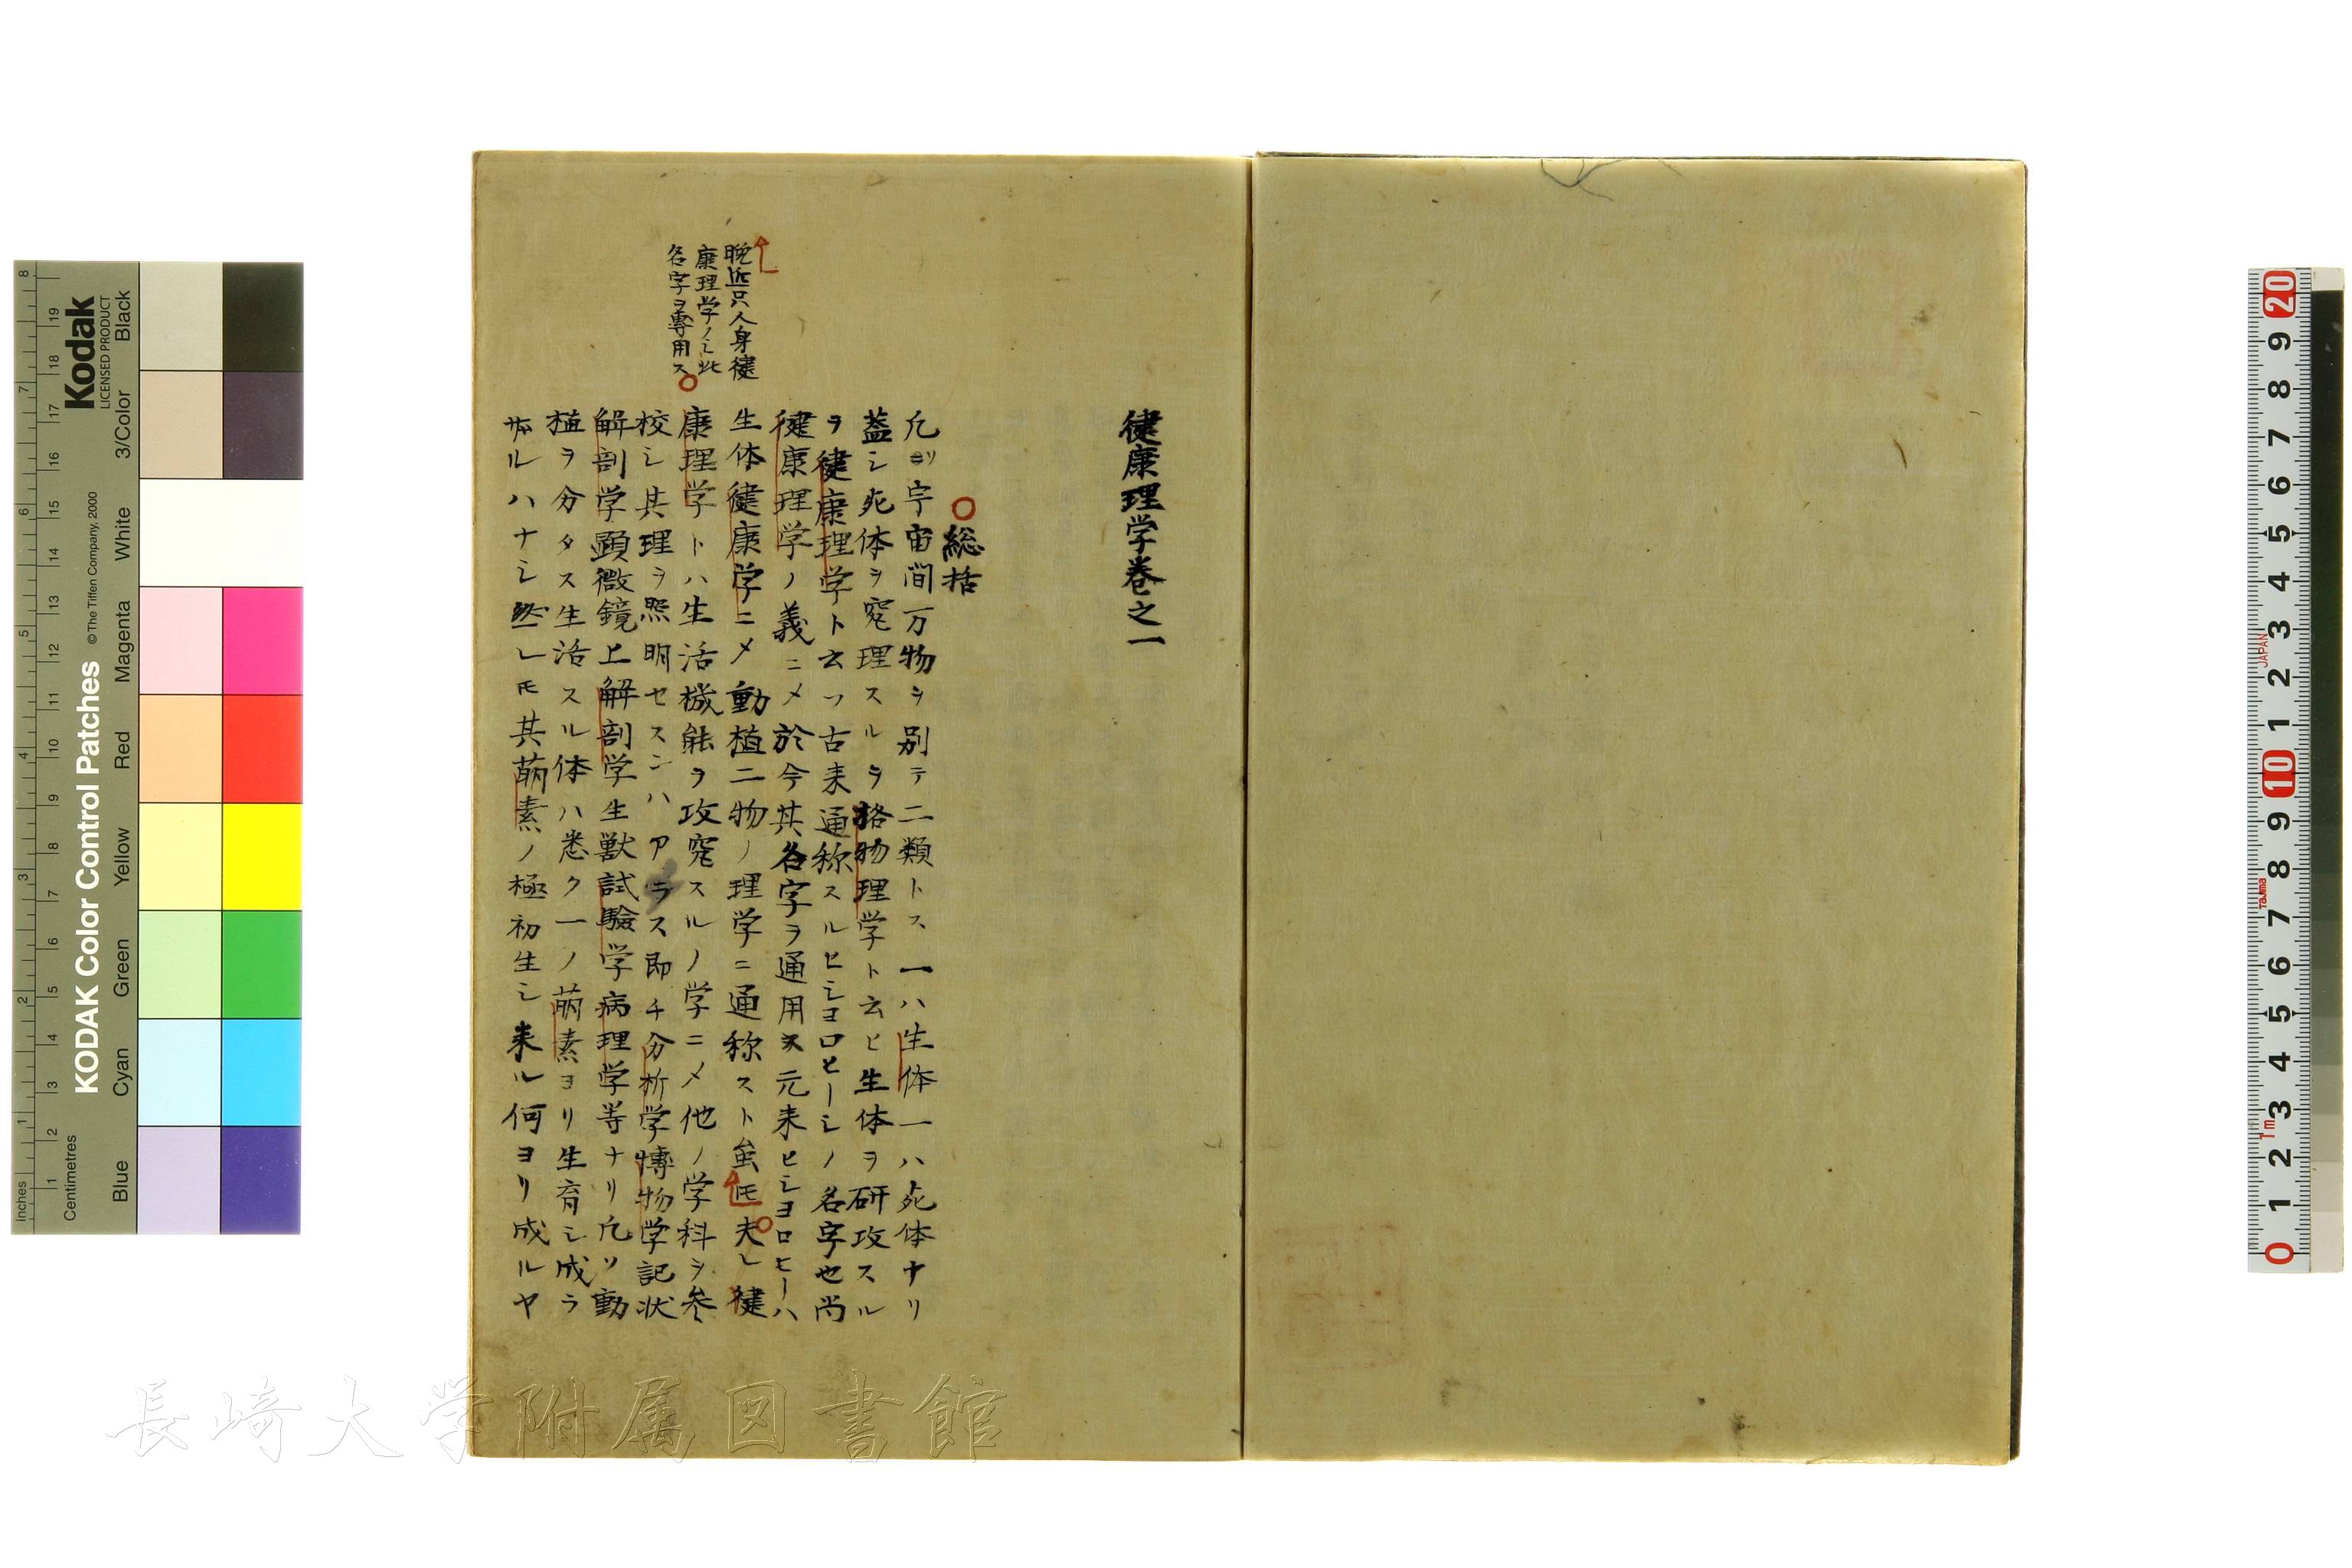 健康理学巻之一
総括
凡ソ宇宙間万物ヲ別テ二類トス一ハ生体一ハ死体ナリ
蓋シ死体ヲ窮理スルヲ格物理学ト云ヒ生体ヲ研攻スル
ヲ健康理学ト云フ古来通称スルヒシヨロヒーシノ名字也尚
健康理学ノ義ニメ於今其名字ヲ通用ス元来ヒシヨロヒーハ
生体健康学ニメ動植二物ノ理学ニ通称スト虽𪜈夫レ健
晩近只人身健
康理学ノミ此
名字ヲ専用ス
康理学トハ生活機能ヲ攻窮スルノ学ニメ他ノ学科ヲ参
校シ其理ヲ照明セスンハアラス即チ分析学博物学記状
解剖学顕微鏡上解剖学生獣試験学病理学等ナリ凡ソ動
植ヲ分タス生活スル体ハ悉ク一ノ萠素ヨリ生育シ成ラ
サルハナシ然レ𪜈其萠素ノ極初生シ来ル何ヨリ成ルヤ
Kodak
LICENSED PRODUCT
KODAK Color Control Patches
© The Tiffen Company, 2000
Inches
Centimetres
Blue Cyan Green Yellow Red Magenta White 3/Color Black
1 2 3 4 5 6 7 8
1 2 3 4 5 6 7 8 9 10 11 12 13 14 15 16 17 18 19
20 9 8 7 6 5 4 3 2 1 10 9 8 7 6 5 4 3 2 1 0
JAPAN
Tajima
1m
長崎大学附属図書館